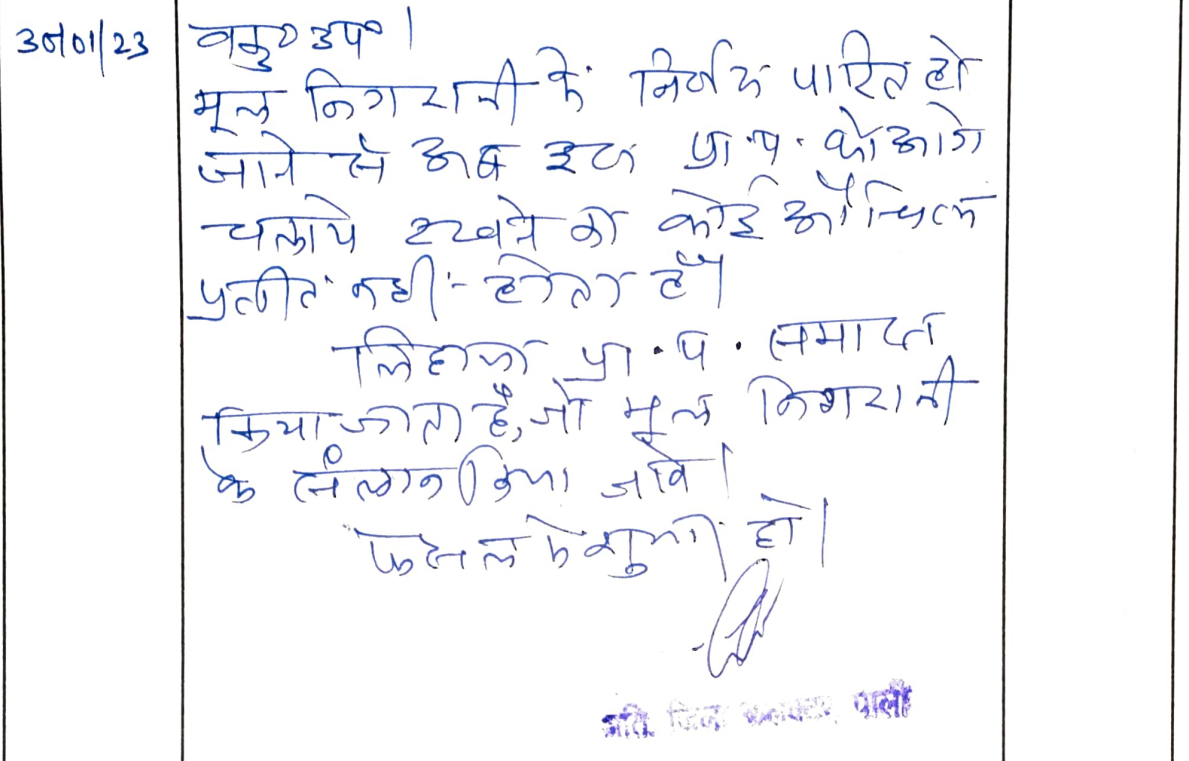 30/01/23 वकु० उप०।
मूल निगरानी में निर्णय पारित हो
जाने से अब इस प्रा.प. को आगे
चलाये रखने का कोई औचित्य
प्रतीत नहीं होता है।
लिहाजा प्रा.प. समाप्त
किया जाता है, जो मूल निगरानी
के संलग्न किया जावे।
फैसल शुमार हो।
अति. जिला कलक्टर, पाली